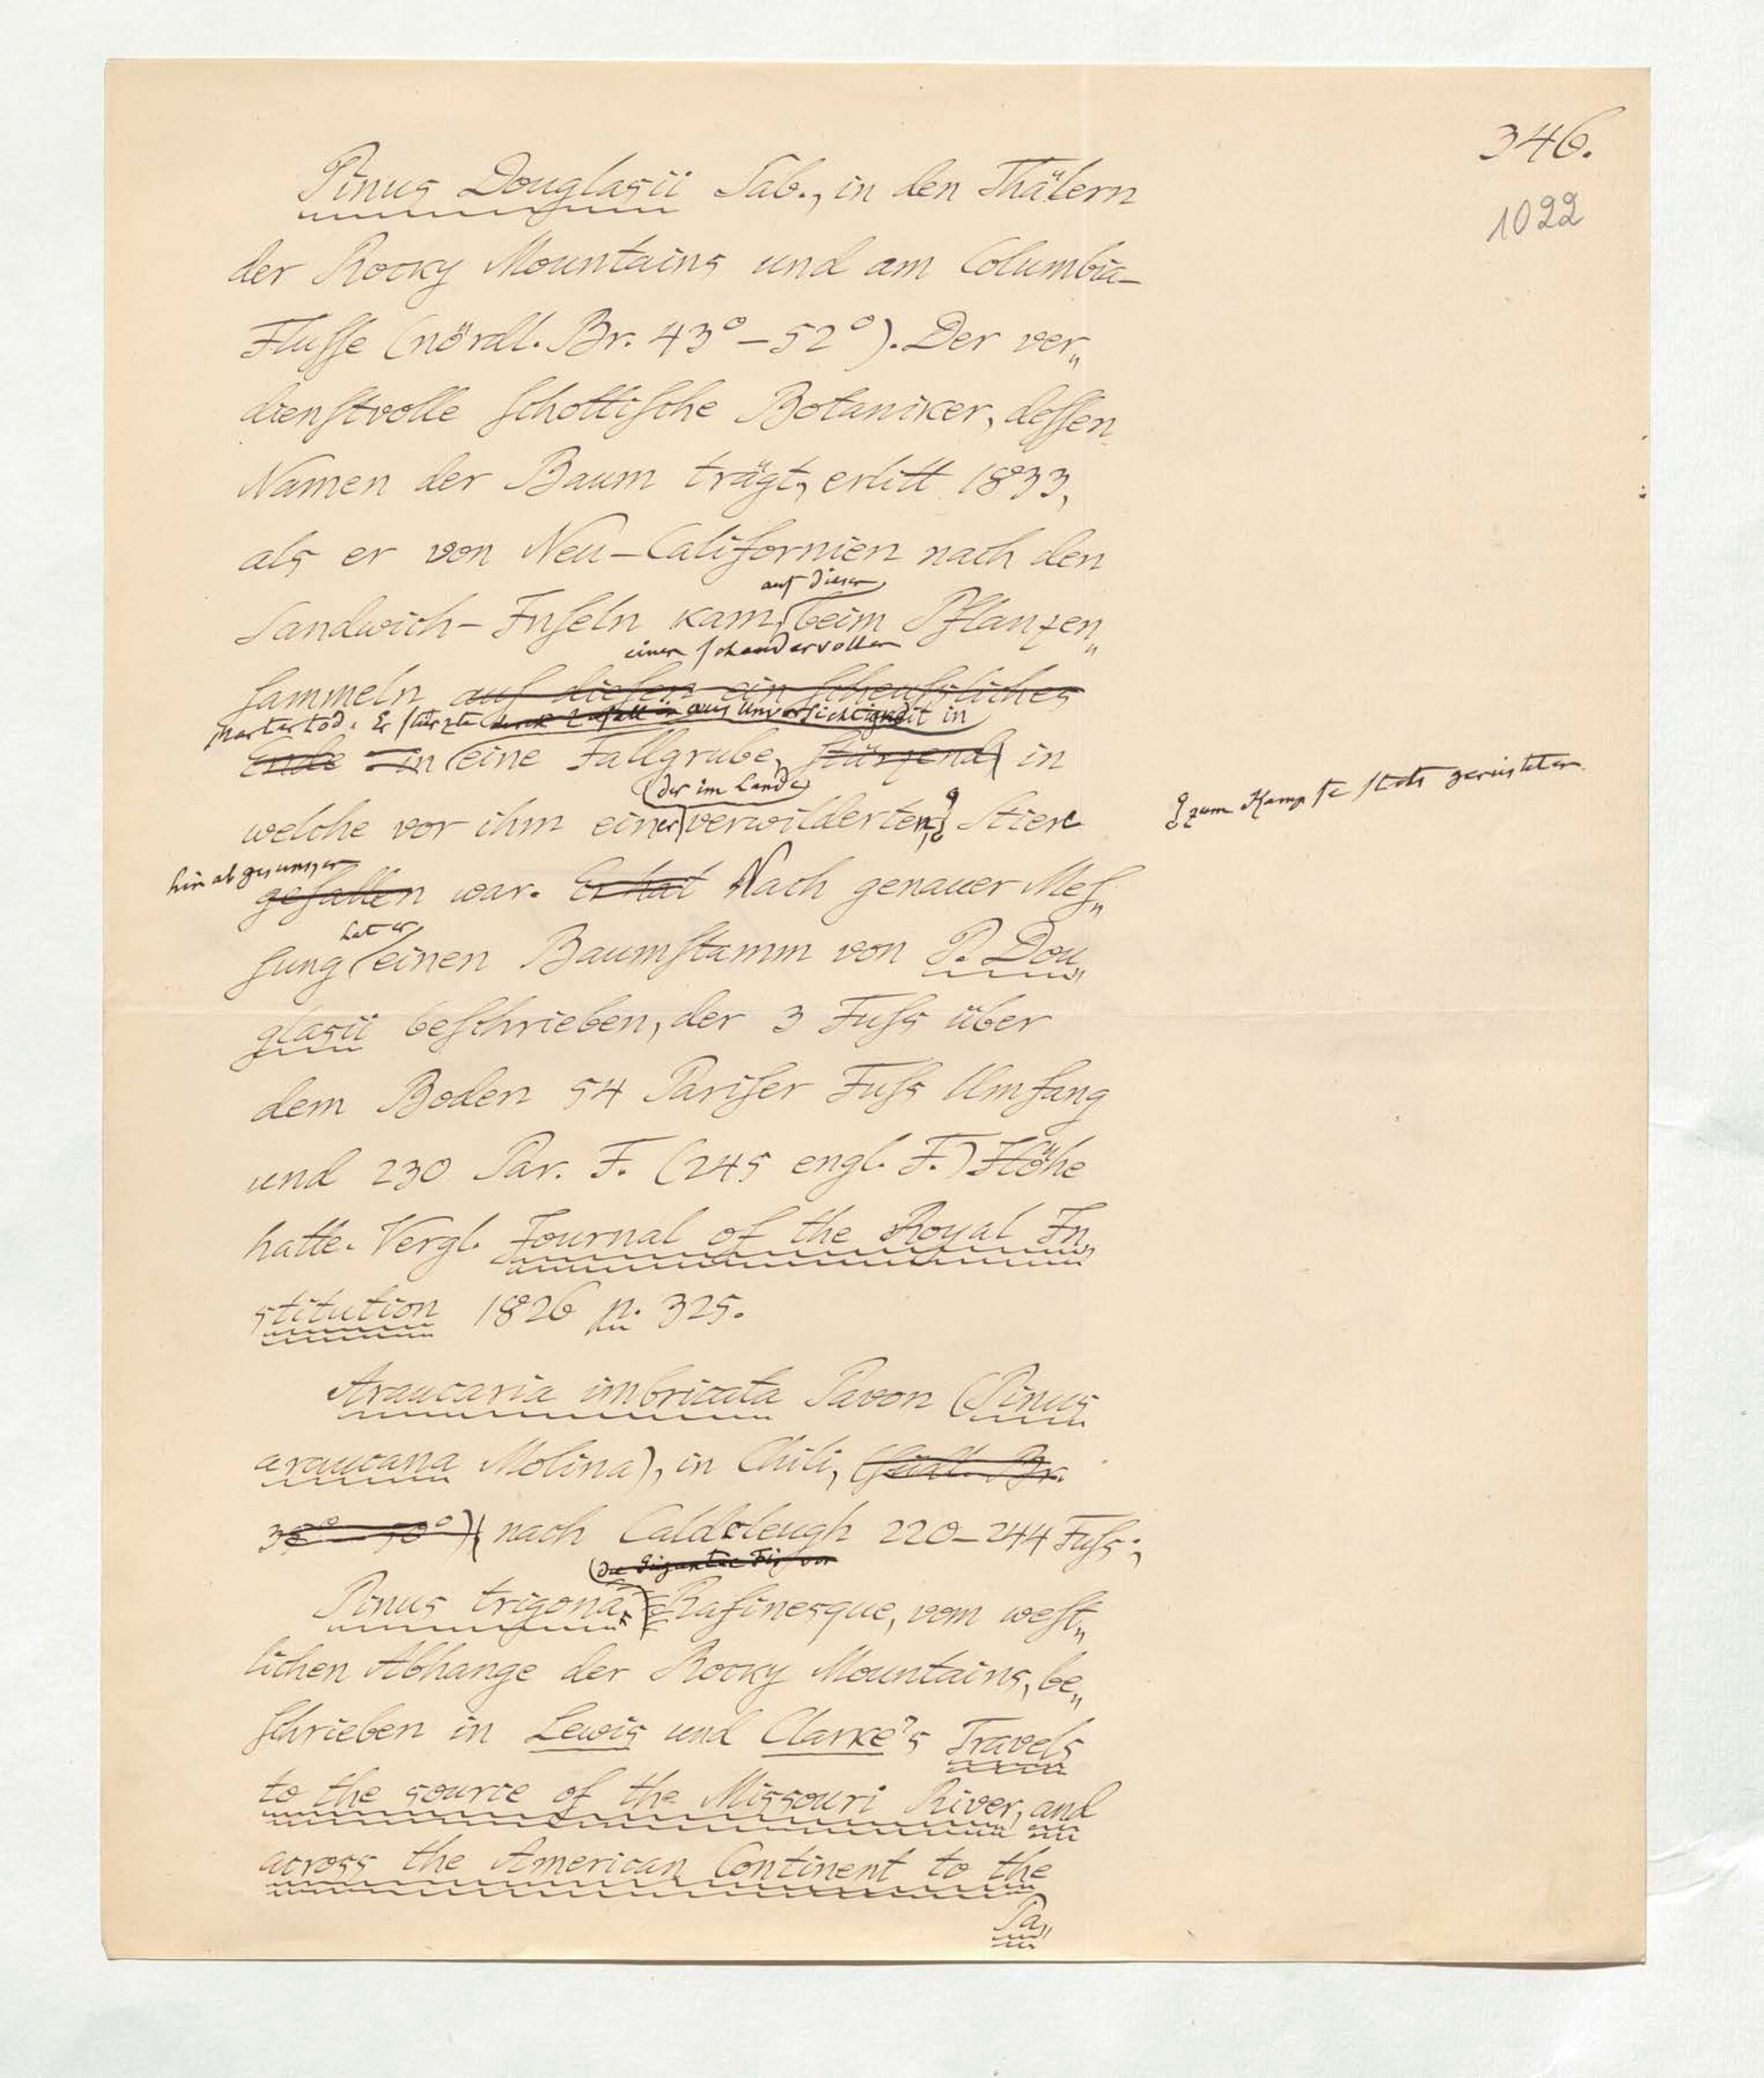 346.
1022
Pinus Douglasii Sab., in den Thälern
der Rocky Mountains und am Columbia-
Flusse (nördl. Br. 43° – 52°). Der ver„
dienstvolle schottische Botaniker, dessen
Namen der Baum trägt, erlitt 1833,
als er von Neu-Californien nach den
auf diesen
Sandwich-Inseln kam, beim Pflanzen„
einen schaudervollen
sammeln auf diesen ein scheussliches
Martertod. Er stürzte durch Zufall in aus Unvorsichtigkeit in
Ende – in eine Fallgrube, stürzend in
(der im Lande)
welche vor ihm einer verwilderten, Stiere
zum Kampfe stets gerüsteten
hinabgesprungen
gefallen war. Er hat Nach genauer Mes„
hat er
sung einen Baumstamm von P. Dou„
glasii beschrieben, der 3 Fuss über
dem Boden 54 Pariser Fuss Umfang
und 230 Par. F. (245 engl. F.) Höhe
hatte. Vergl. Journal of the Royal In„
stitution 1826 p. 325.
Araucaria imbricata Pavon (Pinus
araucana Molina), in Chili, (südl. Br.
35° – 50°) nach Caldcleugh 220–244 Fuss;
(die Gigantic Fir von
Pinus trigona Rafinesque, vom west„
lichen Abhange der Rocky Mountains, be„
schrieben in Lewis und Clarke's Travels
to the source of the Missouri River, and
across the American Continent to the
Pa„